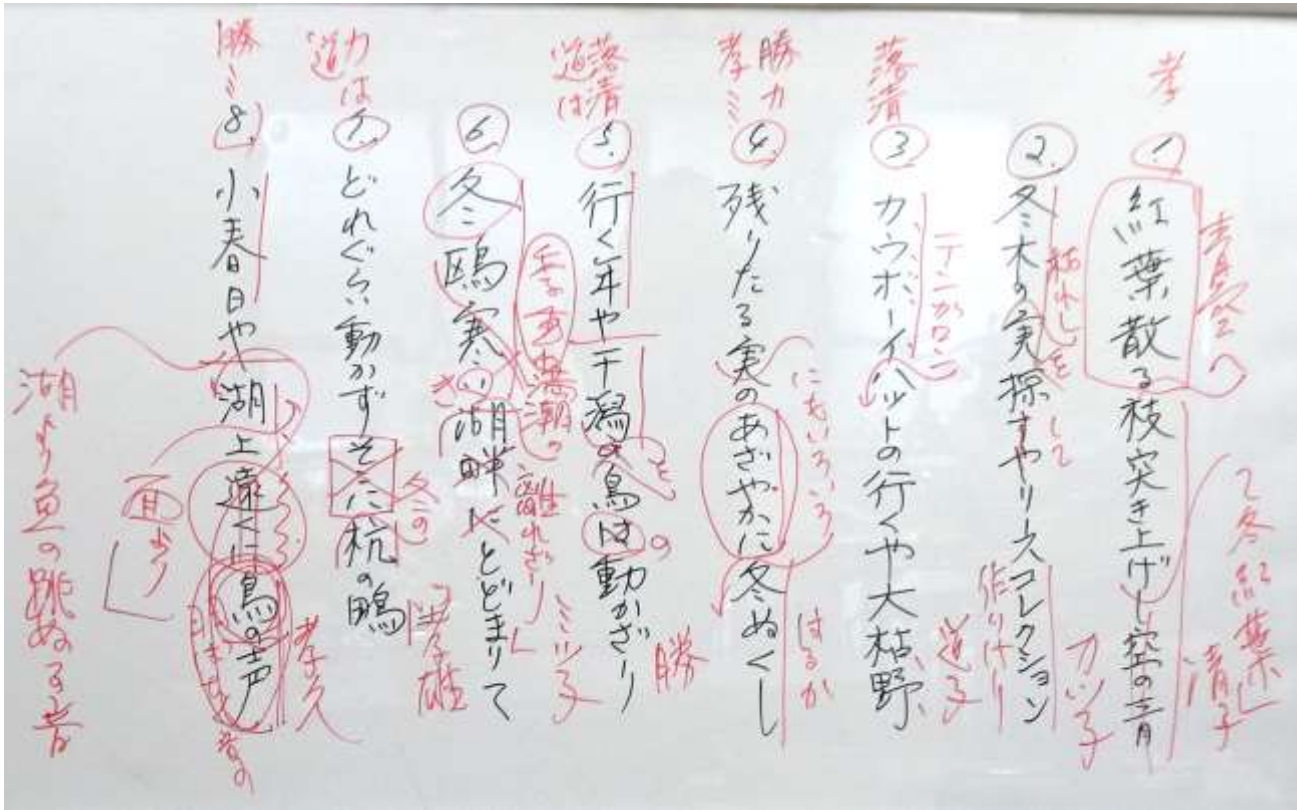 孝
①紅葉散る枝突き上げし空の青
青空へ
冬紅葉
清子
②冬木の実探すやリースコレクション
枯れしを
して
作りけり
カツ子
落清
③カウボーイハットの行くや大枯野
テンガロン
道子
勝力
孝ミ
④残りたる実のあざやかに冬ぬくし
にもいろいろ
はるか
勝
落清
道は
⑤行く年や干潟の鳥は動かざり
と
の
満潮の
離れざり
ミツ子
⑥冬鴎寒い湖畔にとどまりて
さ
孝雄
力は
道
⑦どれぐらい動かずそこに杭の鴎
冬の
孝久
勝ミ
⑧小春日や湖上遠くに鳥の声
湖より魚の跳ぬる音